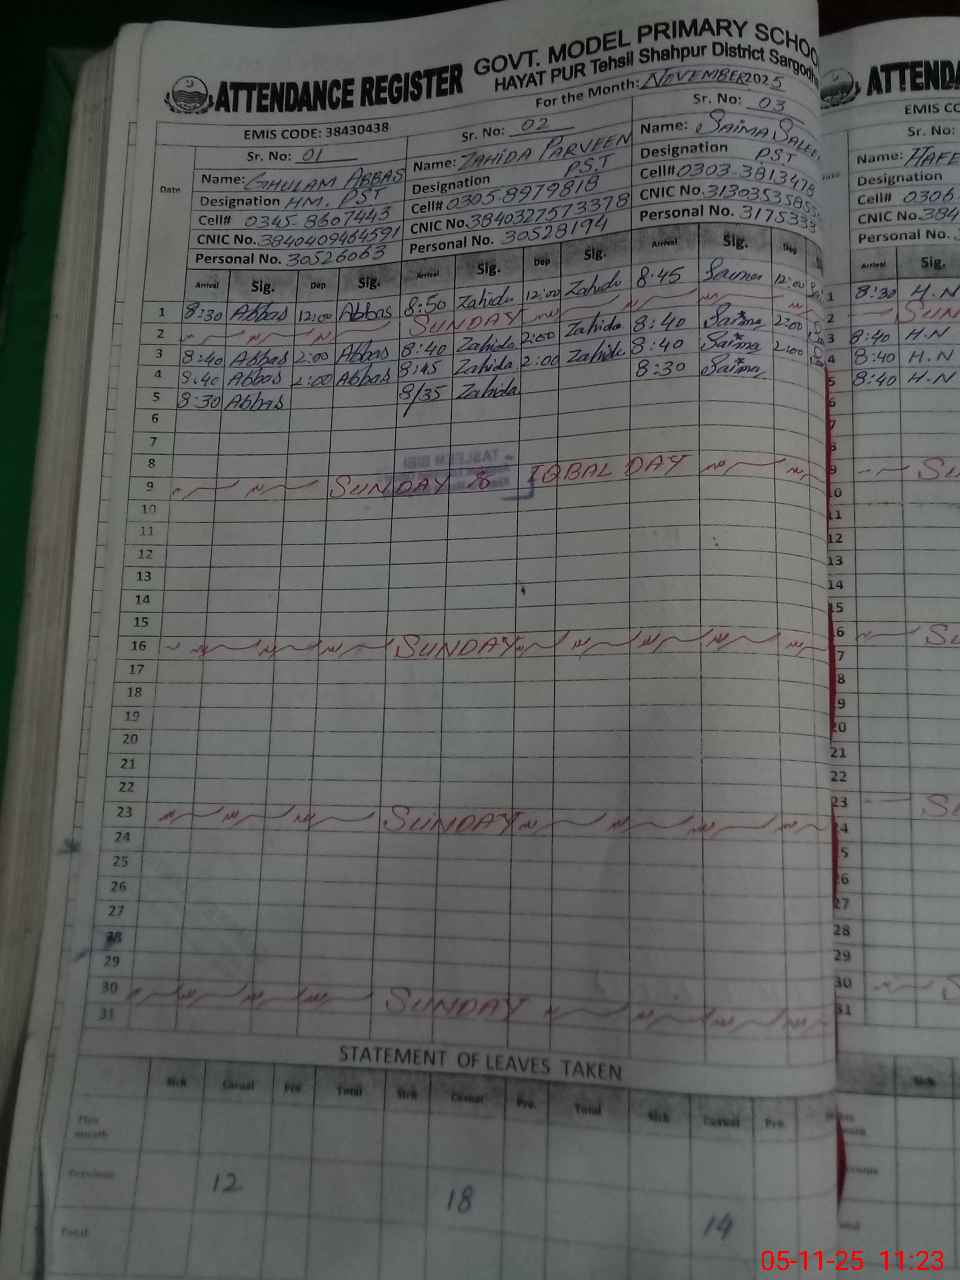 ATTENDANCE REGISTER
GOVT. MODEL PRIMARY SCHOO
HAYAT PUR Tehsil Shahpur District Sargodh
For the Month: NOVEMBER 2025
EMIS CODE: 38430438
Date
Sr. No: 01
Name: GHULAM ABBAS
Designation HM. PST
Cell# 0345-8607443
CNIC No. 3840409464591
Personal No. 30526063
Sr. No: 02
Name: ZAHIDA PARVEEN
Designation PST.
Cell# 0305-8979818
CNIC No. 3840327573378
Personal No. 30528194
Sr. No: 03
Name: SAIMA SALEE
Designation PST
Cell# 0303-3813478
CNIC No. 3130353585
Personal No. 3175333
Arrival Sig. Dep Sig. Arrival Sig. Dep Sig. Arrival Sig. Dep
1 8:30 Abbas 12:00 Abbas 8:50 Zahida 12:00 Zahida 8:45 Saima 12:00
2 SUNDAY
3 8:40 Abbas 2:00 Abbas 8:40 Zahida 2:00 Zahida 8:40 Saima 2:00
4 8:40 Abbas 2:00 Abbas 8:45 Zahida 2:00 Zahida 8:40 Saima 2:00
5 8:30 Abbas 8/35 Zahida 8:30 Saima
6
7
8
9 SUNDAY & IQBAL DAY
10
11
12
13
14
15
16 SUNDAY
17
18
19
20
21
22
23 SUNDAY
24
25
26
27
28
29
30 SUNDAY
31
STATEMENT OF LEAVES TAKEN
Sick Casual Pre Total Sick Casual Pre. Total Sick Casual Pre.
month
Previous 12 18 14
Total
ATTENDA
EMIS CO
Sr. No:
Name: HAFE
Designation
Cell# 0306
CNIC No. 384
Personal No.
Arrival Sig.
1 8:30 H.N
2 SUN
3 8:40 H.N
4 8:40 H.N
5 8:40 H.N
6
7
8
9 SU
10
11
12
13
14
15
16 SU
17
18
19
20
21
22
23 SU
24
25
26
27
28
29
30 S
31
Sick
05-11-25 11:23